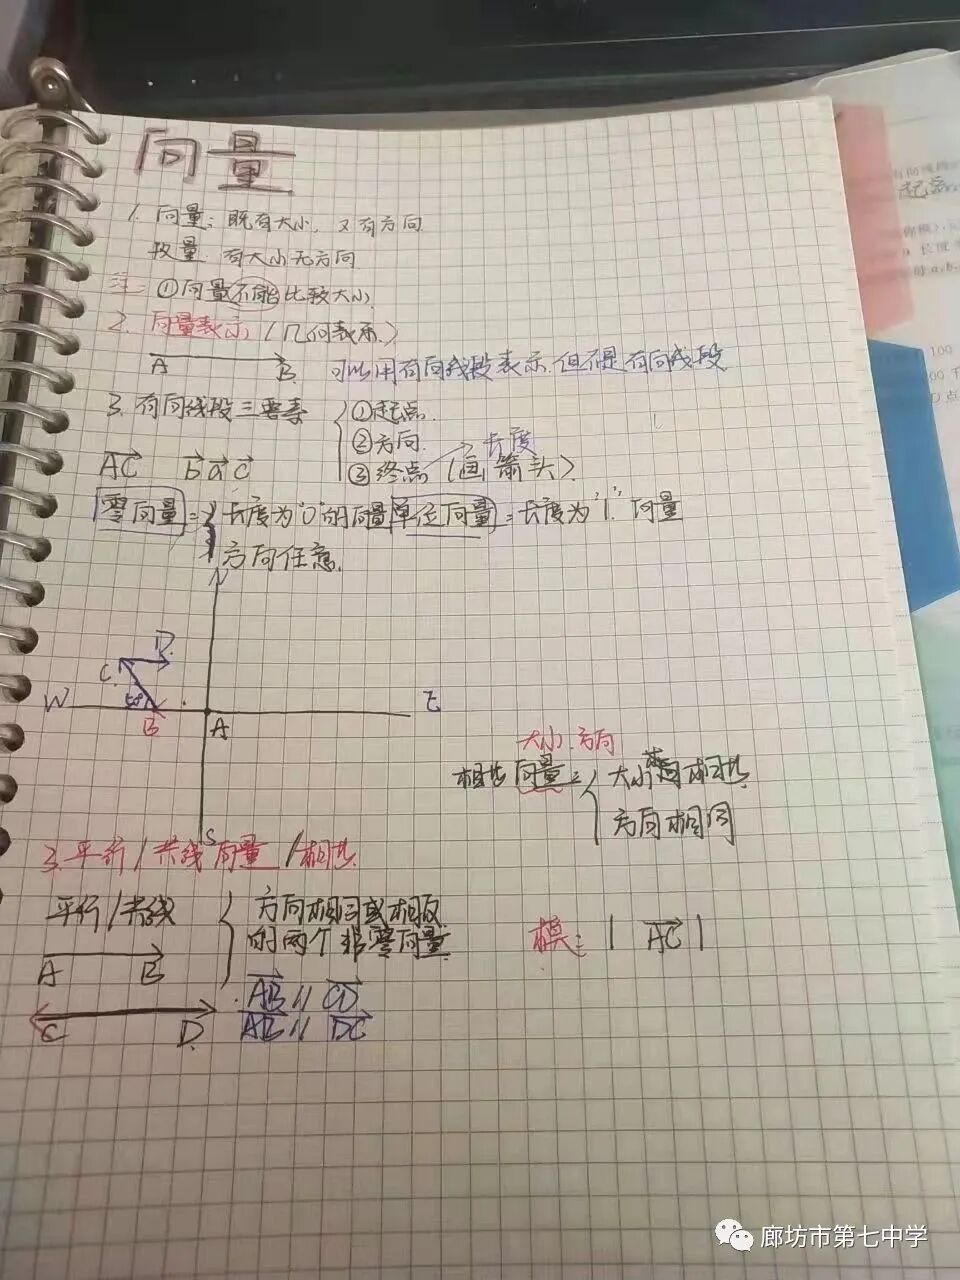 向量
1. 向量：既有大小，又有方向
数量：有大小无方向
注：①向量不能比较大小
2. 向量表示（几何表示）
A B 可以用有向线段表示，但不是有向线段
3. 有向线段三要素 ①起点.
②方向. 长度
AC b a c ③终点（画箭头）
零向量= 长度为"0"的向量 单位向量=长度为"1"向量
方向任意.
N
D
C
W 50° B A E
大小 方向
相等向量= 大小 相等
方向相同
S
3. 平行/共线向量/相等
平行/共线 方向相同或相反
的两个非零向量
模：|AC|
A B
AB // CD
C D AB // DC
起点
100
廊坊市第七中学